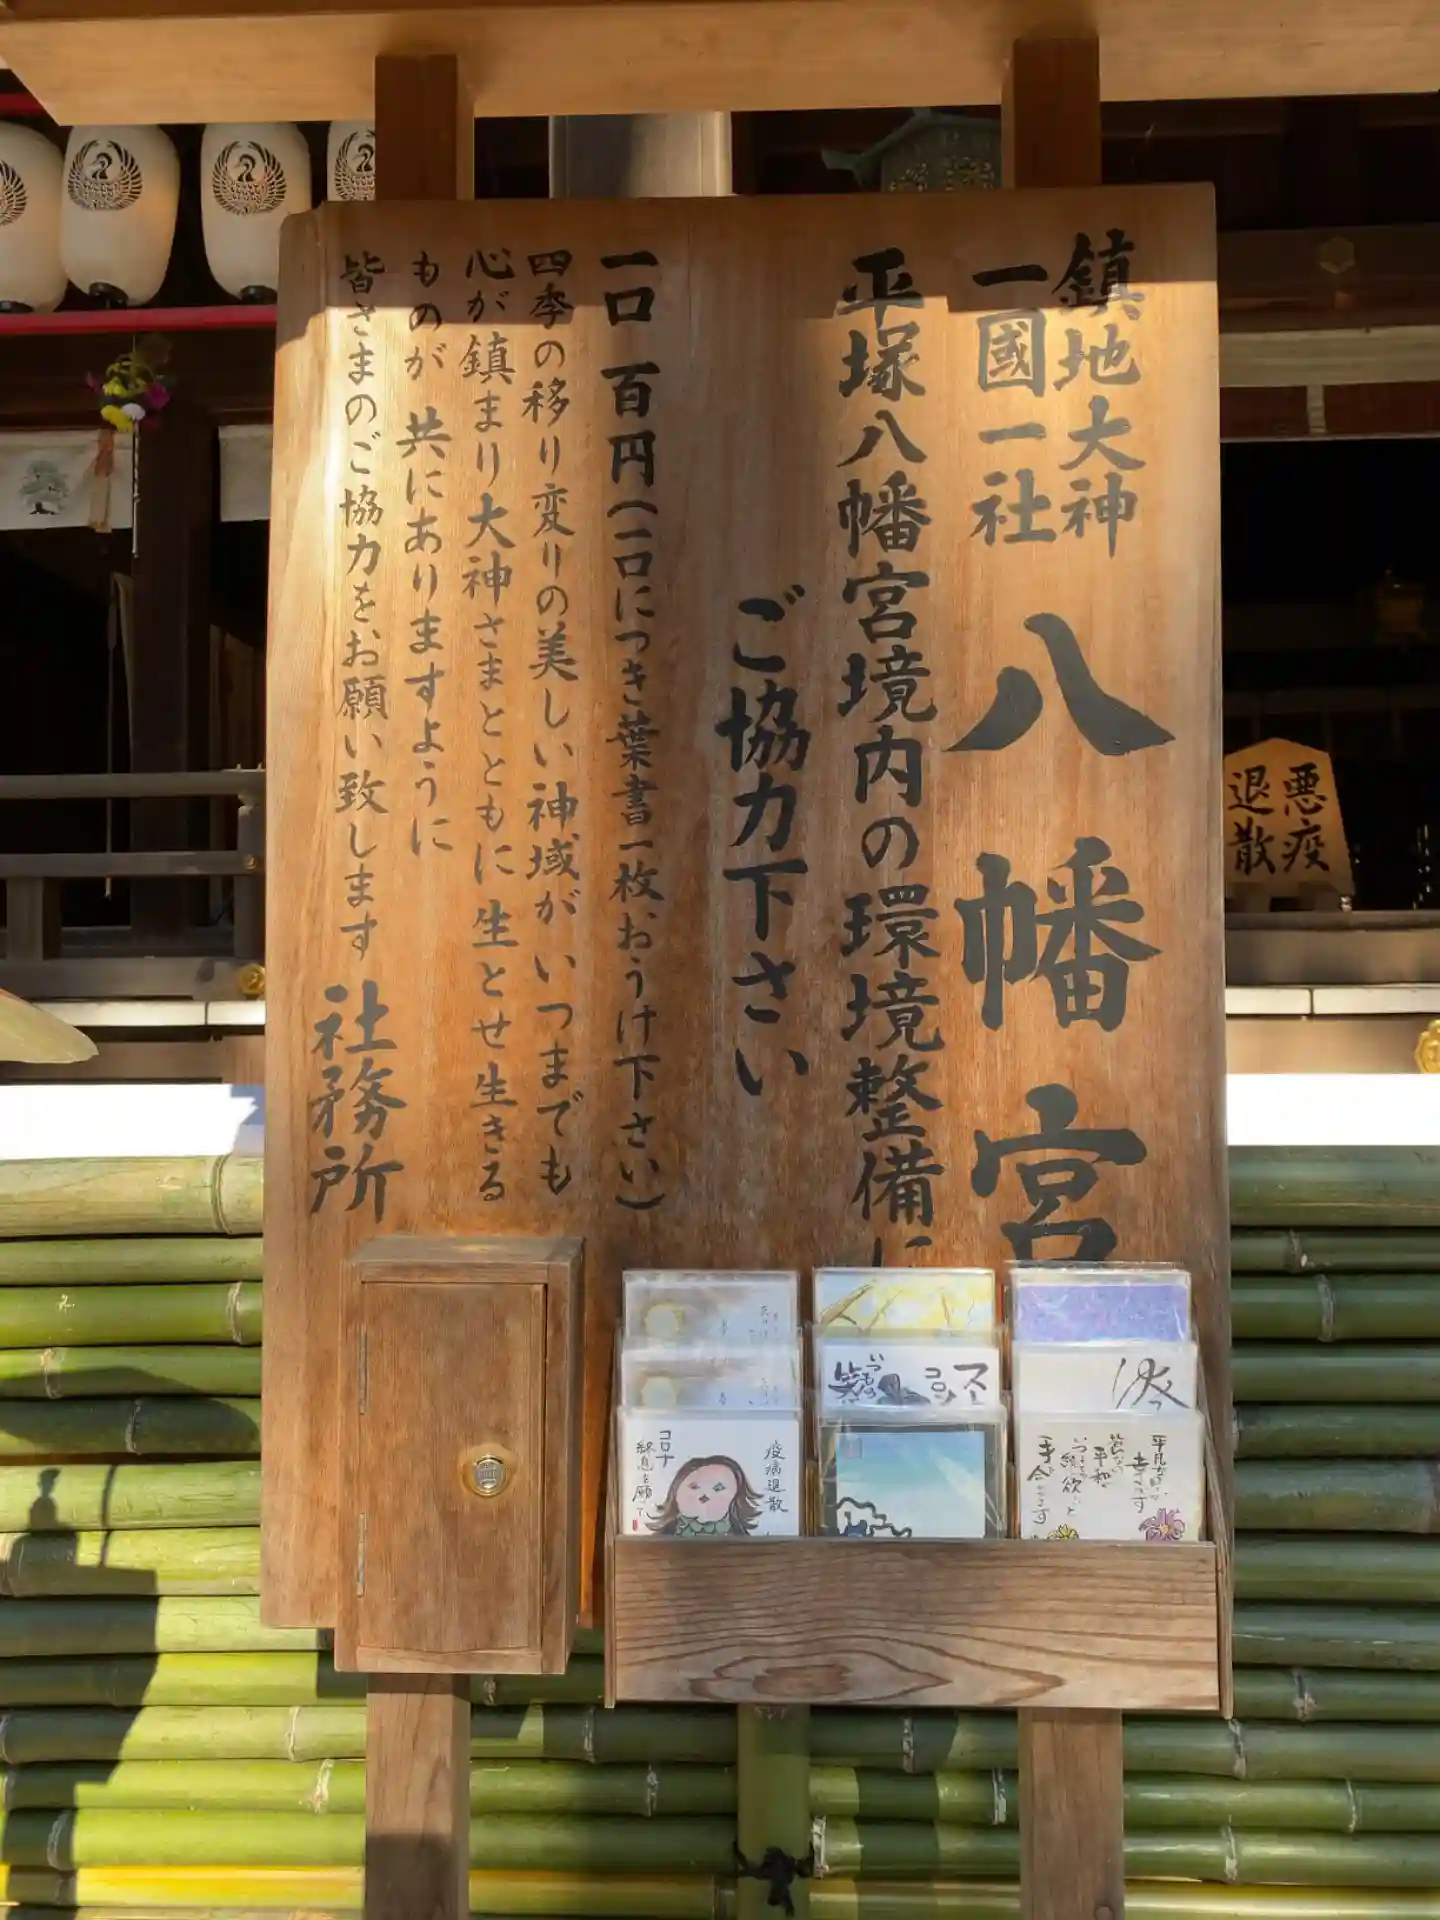 鎮地大神
一國一社
八幡宮
平塚八幡宮境内の環境整備に
ご協力下さい
一口 百円(一口につき葉書一枚おうけ下さい)
四季の移り変りの美しい神域がいつまでも
心が鎮まり大神さまとともに生とせ生きる
ものが 共にありますように
皆さまのご協力をお願い致します
社務所
悪疫
退散
疫病退散
コロナ
終息を願て
いつもの
笑
コロ
スー
平凡
平和